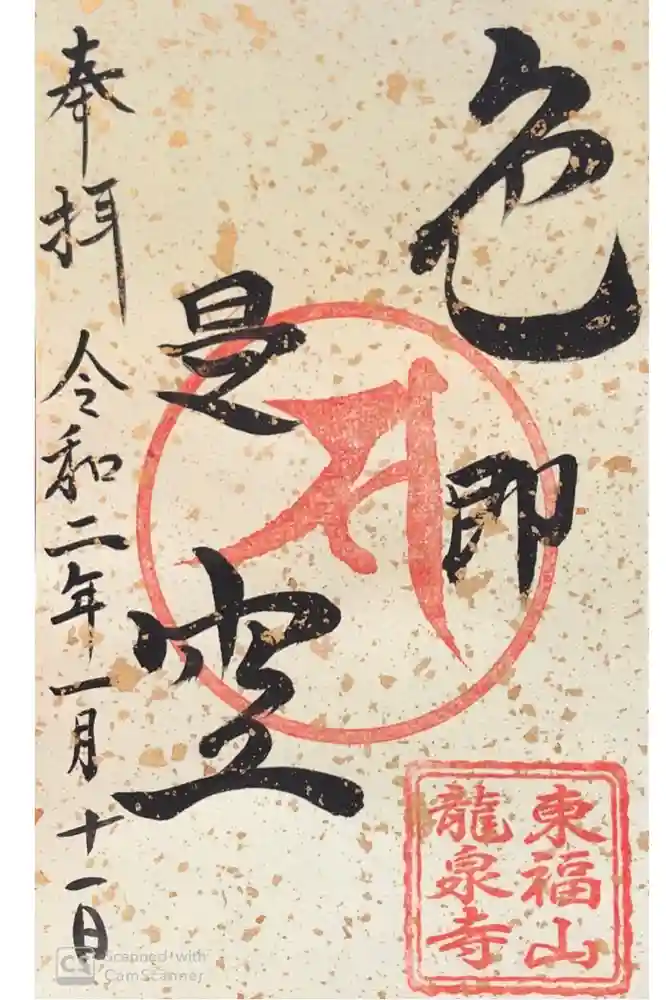 色即
是空
奉拝 令和二年一月十一日
東福山
龍泉寺
CS Scanned with
CamScanner